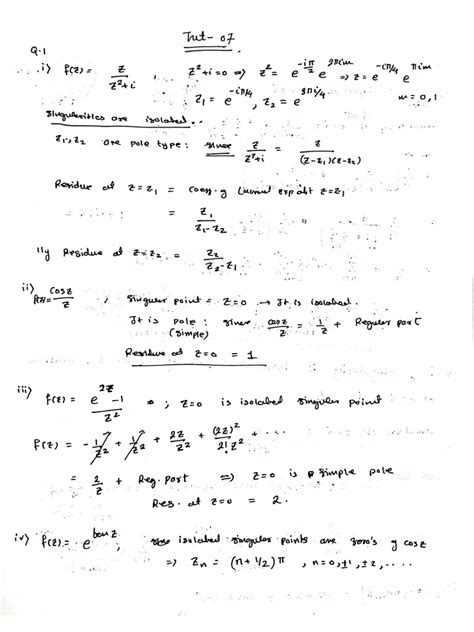 Tut- 07.
Q.1
i) f(z) = z/(z²+i) , z²+i=0 ⇒ z² = e^(-iπ/2) e^(2πim) ⇒ z = e^(-iπ/4) e^(πim)
z₁ = e^(-iπ/4), z₂ = e^(3πi/4) m=0,1
Singularities are isolated.
z₁, z₂ are pole type: since z/(z²+i) = z/((z-z₁)(z-z₂))
Residue at z=z₁ = coeff. y Laurent exp abt z=z₁
= z₁/(z₁-z₂)
lly Residue at z=z₂ = z₂/(z₂-z₁)
ii) f(z)= cosz/z ; singular point = z=0 → It is isolated.
It is pole: since cosz/z = 1/z + Regular part
(simple)
Residue at z=0 = 1
iii) f(z) = (e^(2z) -1)/z² ; z=0 is isolated singular point
f(z) = -1/z² + 1/z² + 2z/z² + (2z)²/(2!z²) + ...
= 2/z + Reg. Part ⇒ z=0 is simple pole
Res. at z=0 = 2.
iv) f(z) = e^(tanz); isolated singular points are zero's y cosz
⇒ zₙ = (n+1/2)π , n=0,±1,±2,....